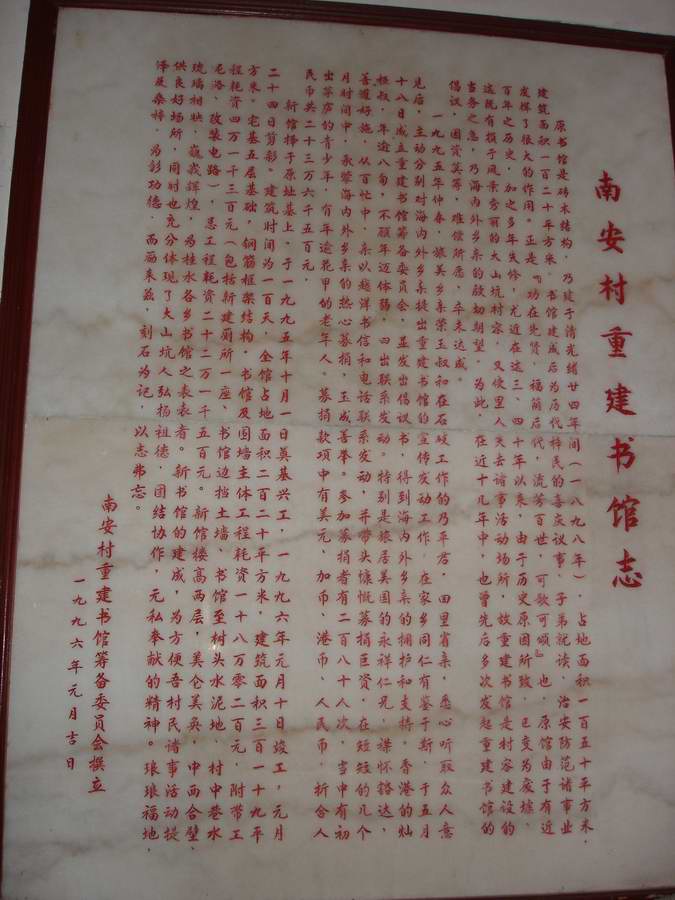 南安村重建书馆志
原书馆是砖木结构，乃建于清光绪廿四年间（一八九八年），占地面积一百五十平方米，
建筑面积一百二十平方米。书馆建成后为历代梓民的喜庆议事、子弟就读、治安防范诸事业
发挥了很大的作用。正是『功在先贤，福荫后代，流芳百世，可歌可颂』也。原馆由于有近
百年之历史，加之多年失修，尤近在这三、四十年以来，由于历史原因所致，已变为废墟，
这既有损于风景秀丽的大山坑村容，又使里人失去诸事活动场所，故重建书馆是村容建设的
当务之急，乃海内外乡亲的殷切期望。为此，在近十几年中，也曾先后多次发起重建书馆的
倡议，因资莫筹，难偿所愿，卒未达成。
一九九五年仲春，旅美乡亲荣玉叔和在石岐工作的乃平君，回里省亲，悉心听取众人意
见后，主动分别对海内外乡亲提出重建书馆的宣传发动工作。在家乡同仁有鉴于斯，于五月
十八日成立重建书馆筹备委员会，并发出倡议书，得到海内外乡亲的拥护和支持。香港的灿
极叔，年逾八旬，不顾年迈体弱，四出联系发动。特别是旅居美国的永祥仁兄，襟怀豁达，
善道好施，从百忙中，亲以越洋书信和电话联系发动，并带头慷慨募捐巨资，在短短的几个
月时间中，承蒙海内外乡亲的热心募捐，玉成善举。参加募捐者有二百八十人次，当中有初
出茅庐的青少年，有年逾花甲的老年人。募捐款项中有美元、加币、港币、人民币，折合人
民币共二十三万六千五百元。
新馆择于原址基上，于一九九五年十月一日奠基兴工，一九九六年元月十日竣工，元月
二十四日剪彩。建筑时间为一百天，全馆占地面积二百二十平方米，建筑面积三百一十九平
方米。宅基五层基础，钢筋框架结构。书馆及围墙主体工程耗资一十八万零二百元，附带工
程耗资四万一千三百元（包括新建厕所一座、书馆边挡土墙、书馆至树头水泥地、村中巷水
尼路、改装电路），总工程耗资二十二万一千五百元。新馆楼高两层，美仑美奂，中西合壁，
琉璃相映，巍峨辉煌，为桂水各乡书馆之表表者。新书馆的建成，为方便吾村民诸事活动提
供良好场所，同时也充分体现了大山坑人弘扬祖德，团结协作，无私奉献的精神。琅琅福地，
泽及桑梓，为彰功德，而励来兹，刻石为记，以志弗忘。
南安村重建书馆筹备委员会撰立
一九九六年元月吉日